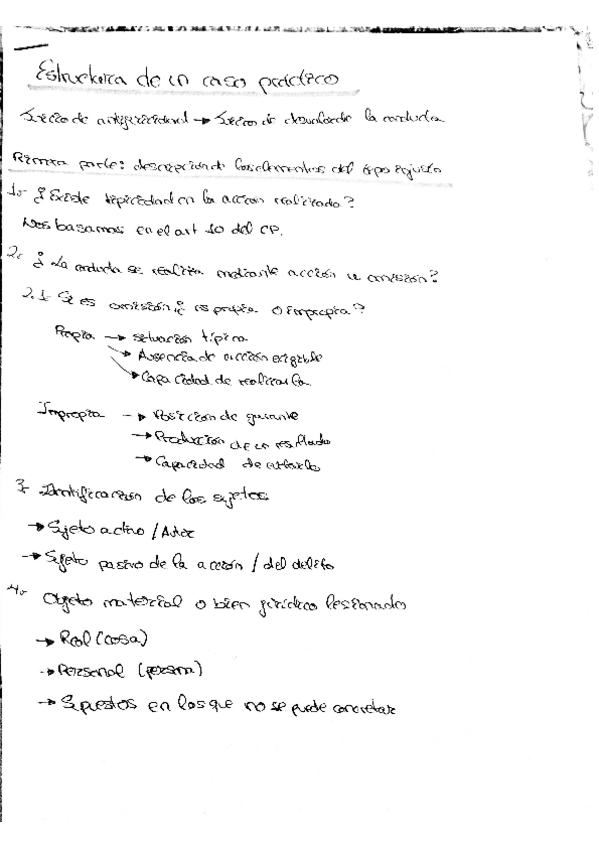 Estructura de un caso práctico
Juicio de antijuricidad → Juicio de desvalor de la conducta
Primera parte: descripción de los elementos del tipo injusto
1.- ¿Existe tipicidad en la acción realizada?
Nos basamos en el art 10 del CP.
2.- ¿La conducta se realiza mediante acción u omisión?
2.1- Si es omisión ¿es propia o impropia?
Propia → situación típica
→ Ausencia de acción exigible
→ Capacidad de realizarla
Impropia → Posición de garante
→ Producción de un resultado
→ Capacidad de evitarlo
3- Identificación de los sujetos
→ Sujeto activo / Autor
→ Sujeto pasivo de la acción / del delito
4.- Objeto material o bien jurídico lesionado
→ Real (cosa)
→ Personal (persona)
→ Supuestos en los que no se puede concretar